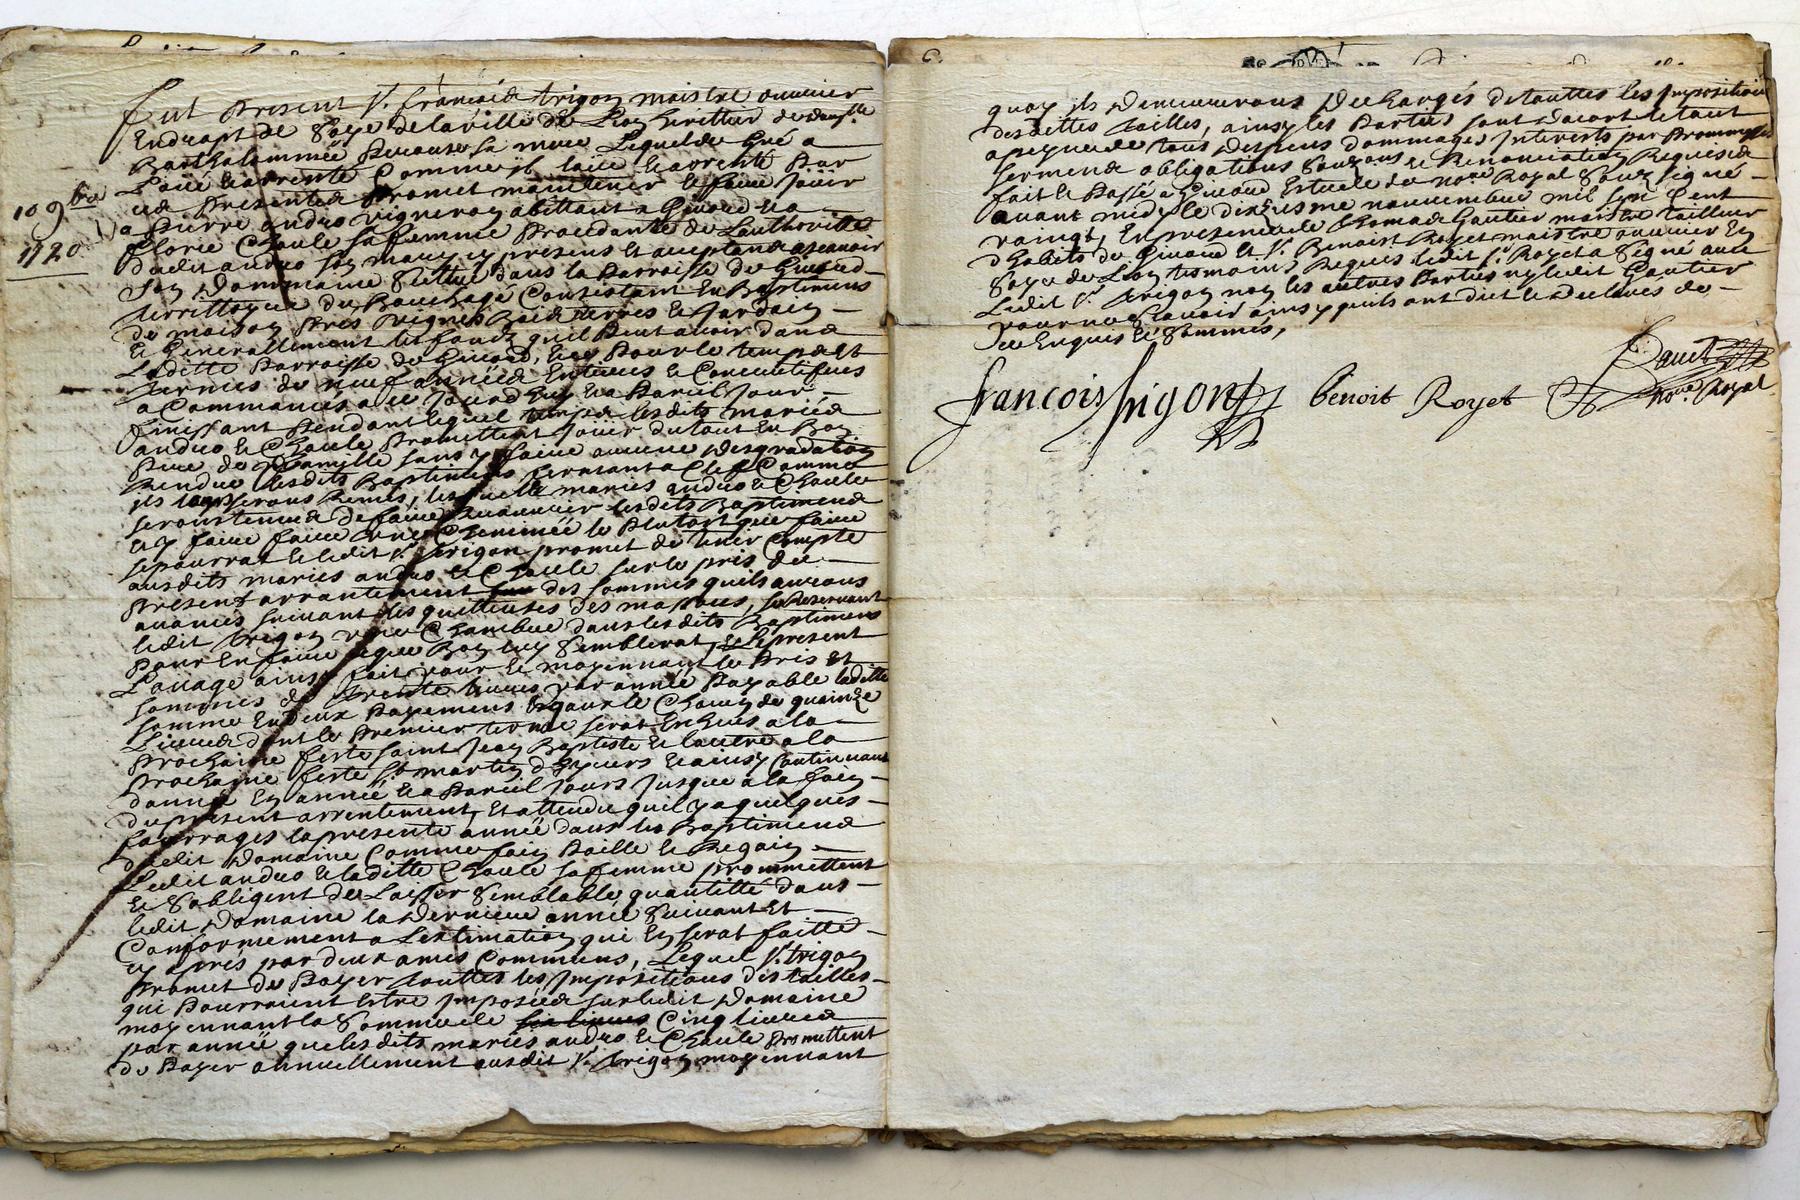 10 9bre
1720
Fut present Sr. francois trigon maistre ouvrier
En drapt de Soye de la ville de Lion heritier de damlle
Barthelemmée sa mere Lequel de gré a
Loüé et arrenté Comme jl loüe et arrente Par
ces Presentes Promet maintenir et faire Joüir
a Pierre andro vigneron abittant a Givord et a
florie Chaule sa femme Procedante de Lauthoritté
dudit andro son mary cy presens et acceptans ascavoir
son Dommaine Scittué dans la Parroisse de Givord
Consistant En Baptimens
de maison Prés vignes Bois terres et Jardain
et Generallement les fondz quil Peut avoir dans
Ladite Parroisse de Givord, Et ce Pour le temps et
termes de neuf années Entieres et Consecutifves
a Commancés a ce Jourdhuy et a Pareil Jour
finissant Pendant lequel temps lesdits mariés
andro et Chaule Promettent Joüir du tout En Bon
Pere de famille sans y faire aucune Desgradation
Rendre lesdits Baptimens fermants a Clef Comme
ils leurs serons Remis, lesquels mariés andro et Chaule
serons tenus de faire lesdits Baptimens
et y faire faire une Cheminée le Plutost que faire
se pourrat et ledit Sr. trigon promet de tenir Compte
ausdits mariés andro et Chaule sur le pris du
Present arrantement des sommes quils aurons
avancés suivant les quittances des massons, se Reservant
ledit trigon une Chambre dans lesdits Baptimens
Pour En faire ce que Bon luy Semblerat, Le present
Loüage ainsy fait pour et moyennant le Pris et
sommes de trente livres par année Payable ladite
somme En Deux Payemens Egaux le Chacun de quainze
Livres dont le Premier terme serat Encheus a la
prochaine feste saint Jean Baptiste et lautre a la
prochaine feste St martin d'hyvers et ainsy Continuant
dannée En année et a Pareil Jours Jusque a la fain
du present arrentement, Et attendu quil y a quelques
fourrages la presente année dans les Baptimens
dudit Domaine Comme fain Paille et Regain
Ledit andro et ladite Chaule sa femme promettent
et Sobligent de Laisser Semblable quantitté dans
ledit Domaine la Derniere année Suivant Et
Conformement a Lestimation qui En serat faitte
cy aprés par deux amis Communs, Lequel Sr. trigon
Promet de Payer touttes les Jmpositions des tailles
qui Pourroient Estre Jmposées sur ledit Domaine
moyennant la Somme de Cinq livres
par année que lesdits mariés andro et Chaule Promettent
de Payer annuellement audit Sr. trigon moyennant
quoy ils Demeurerons Dechargés de touttes les Jmpositions
desdittes tailles, ainsy les Parties sont Dacort
a peyne de tous Despens Dommages Jnterests par Prommesses
serment obligations Renonciation Requises
fait et Passé a Givord Estude du nore Royal Souz signé
avant midy le dixiesme novembre mil sept Cent
vaingt, En presence de thomas Gautier maistre tailleur
dhabits de Givord et Sr. Benoist Royet maistre ouvrier En
Soye de Lion tesmoins Requis ledit Sr. Royet a Signé avec
Ledit Sr. trigon non les autres Parties ny ledit Gautier
pour ne Scavoir ainsy quils ont dict et Declarés de
ce Enquis et Sommés,
francois trigon
benoit Royet
nore Royal